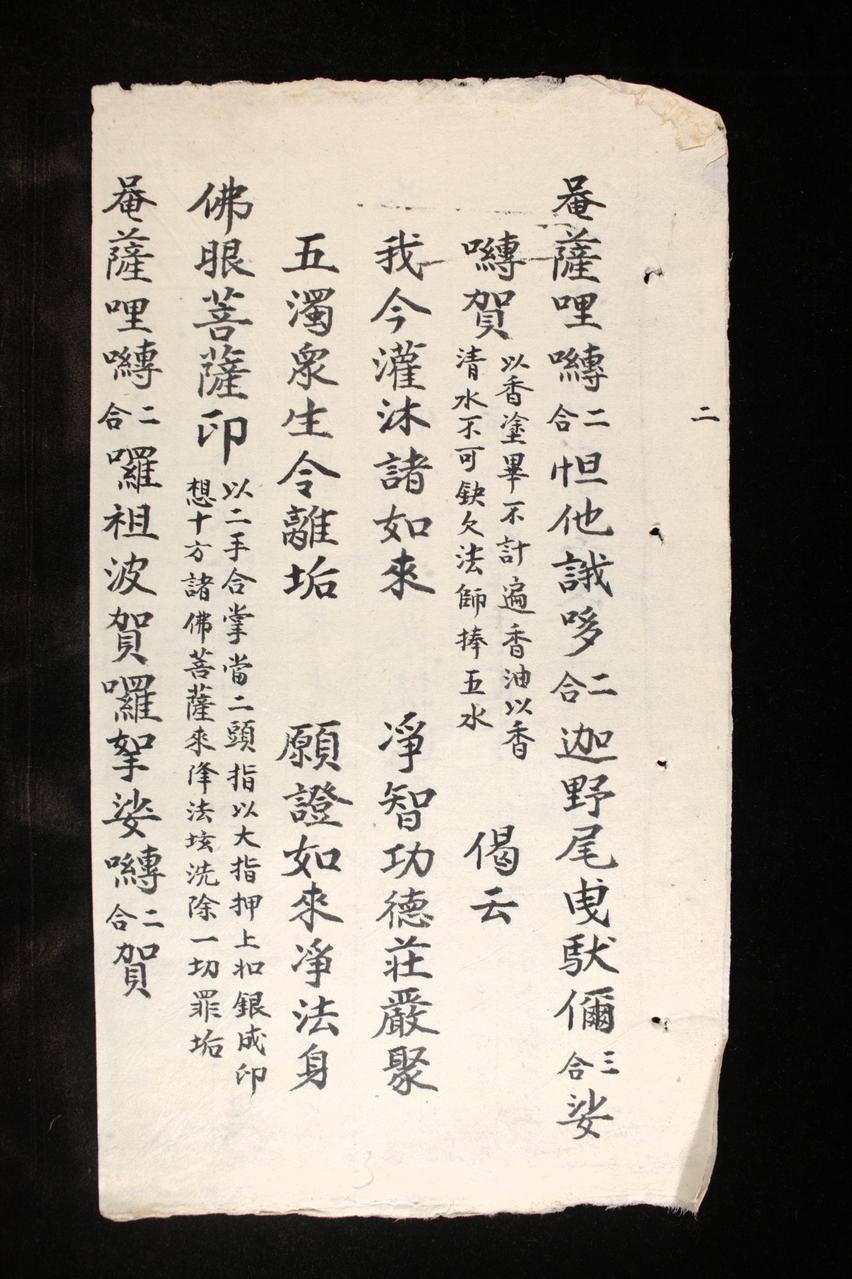 二
菴薩哩嚩二合怛他誐哆二合迦野尾曳馱儞三合娑
嚩賀以香塗畢不計遍香油以香
清水不可缺欠法師捧五水 偈云
我今灌沐諸如來 淨智功德莊嚴聚
五濁眾生令離垢 願證如來淨法身
佛眼菩薩印以二手合掌當二頭指以大指押上如銀成印
想十方諸佛菩薩來降法垓洗除一切罪垢
菴薩哩嚩二合囉祖波賀囉拏娑嚩二合賀
3